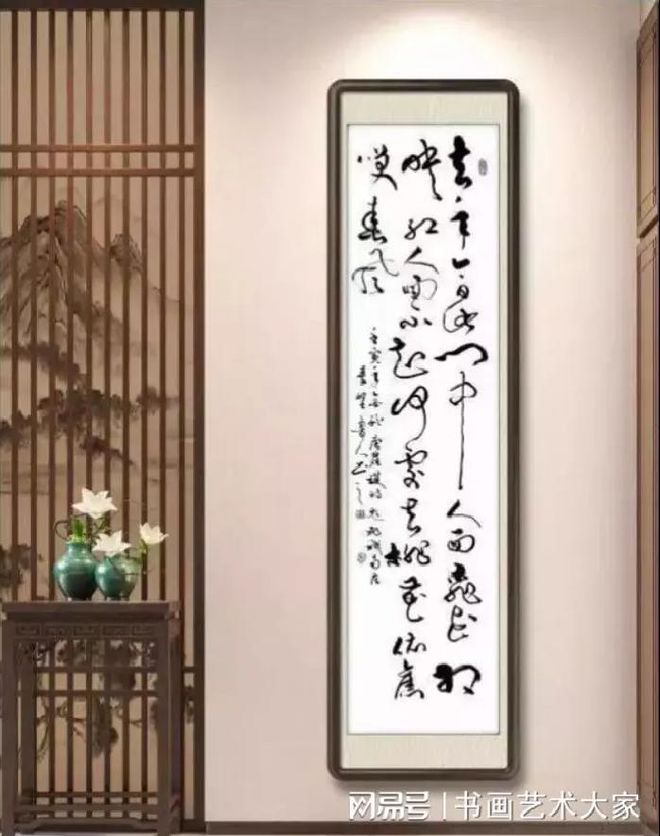 去年今日此门中人面桃花相
映红人面不知何处去桃花依旧
笑春风
壬寅年 崔护 南庄
人书
网易号 | 书画艺术大家